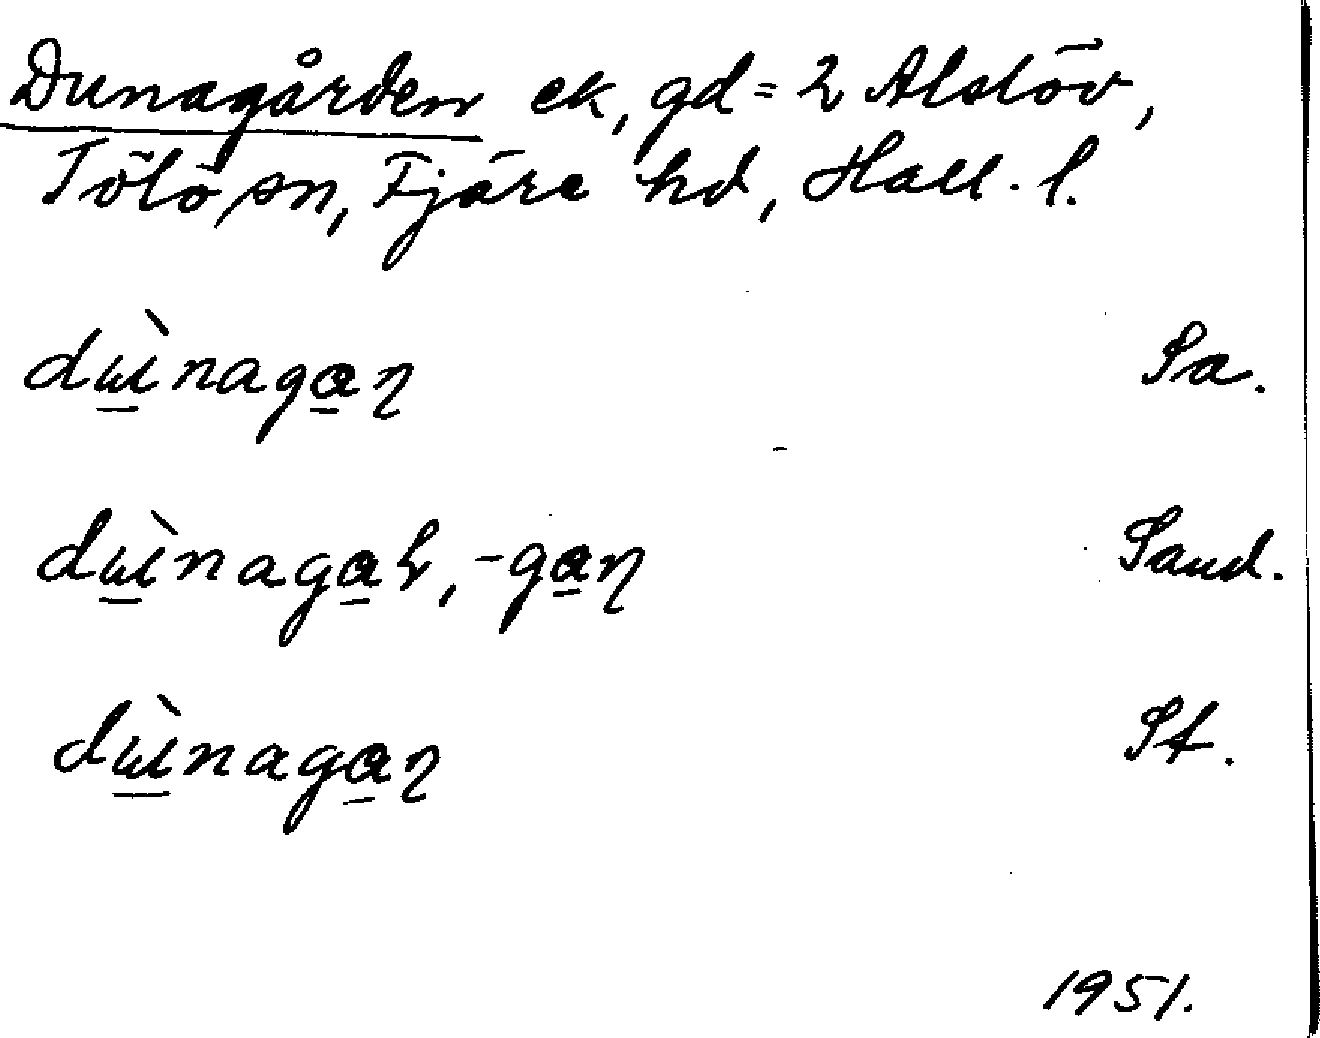 Dunagården ek, gd = 2 Alslöv,
Tölö sn, Fjäre hd, Hall. l.
dɯ̲̀naga̲ɳ Sa.
dɯ̲̀naga̲r, -ga̲ɳ Sand.
dɯ̲̀naga̲ɳ St.
1951.